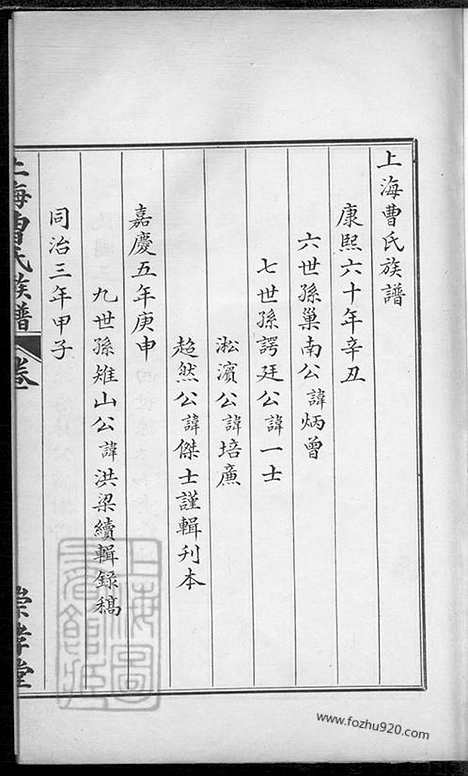 上海曹氏族譜
康熙六十年辛丑
六世孫巢南公諱炳曾
七世孫諤廷公諱一士
淞濱公諱培廉
超然公諱傑士謹輯刊本
嘉慶五年庚申
九世孫雉山公諱洪梁續輯錄稿
同治三年甲子
上海曹氏族譜
卷一
崇孝堂
上海圖
www.fozhu920.com